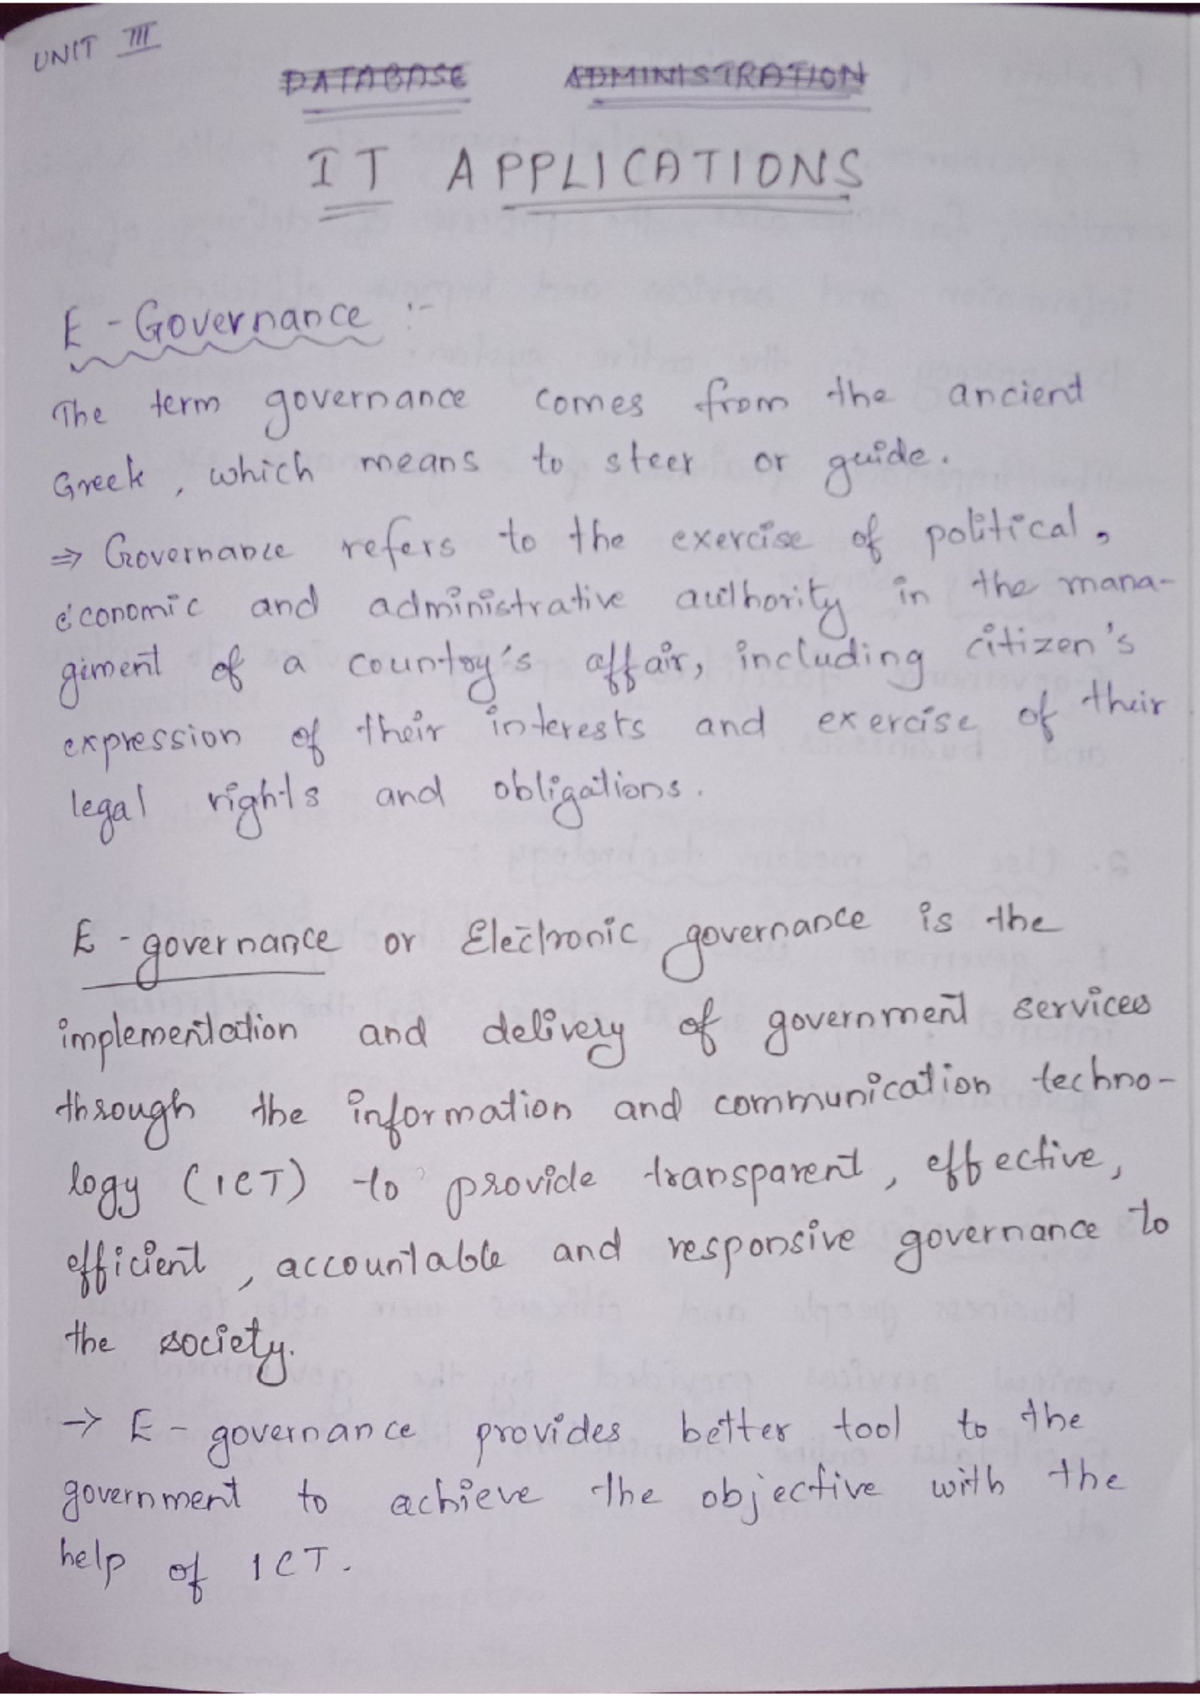 UNIT III
DATABASE ADMINISTRATION
IT APPLICATIONS
E - Governance :-
The term governance comes from the ancient
Greek, which means to steer or guide.
⇒ Governance refers to the exercise of political,
economic and administrative authority in the mana-
giment of a country's affair, including citizen's
expression of their interests and exercise of their
legal rights and obligations.
E - governance or Electronic governance is the
implementation and delivery of government services
through the information and communication techno-
logy (ICT) to provide transparent, effective,
efficient, accountable and responsive governance to
the society.
→ E - governance provides better tool to the
government to achieve the objective with the
help of ICT.